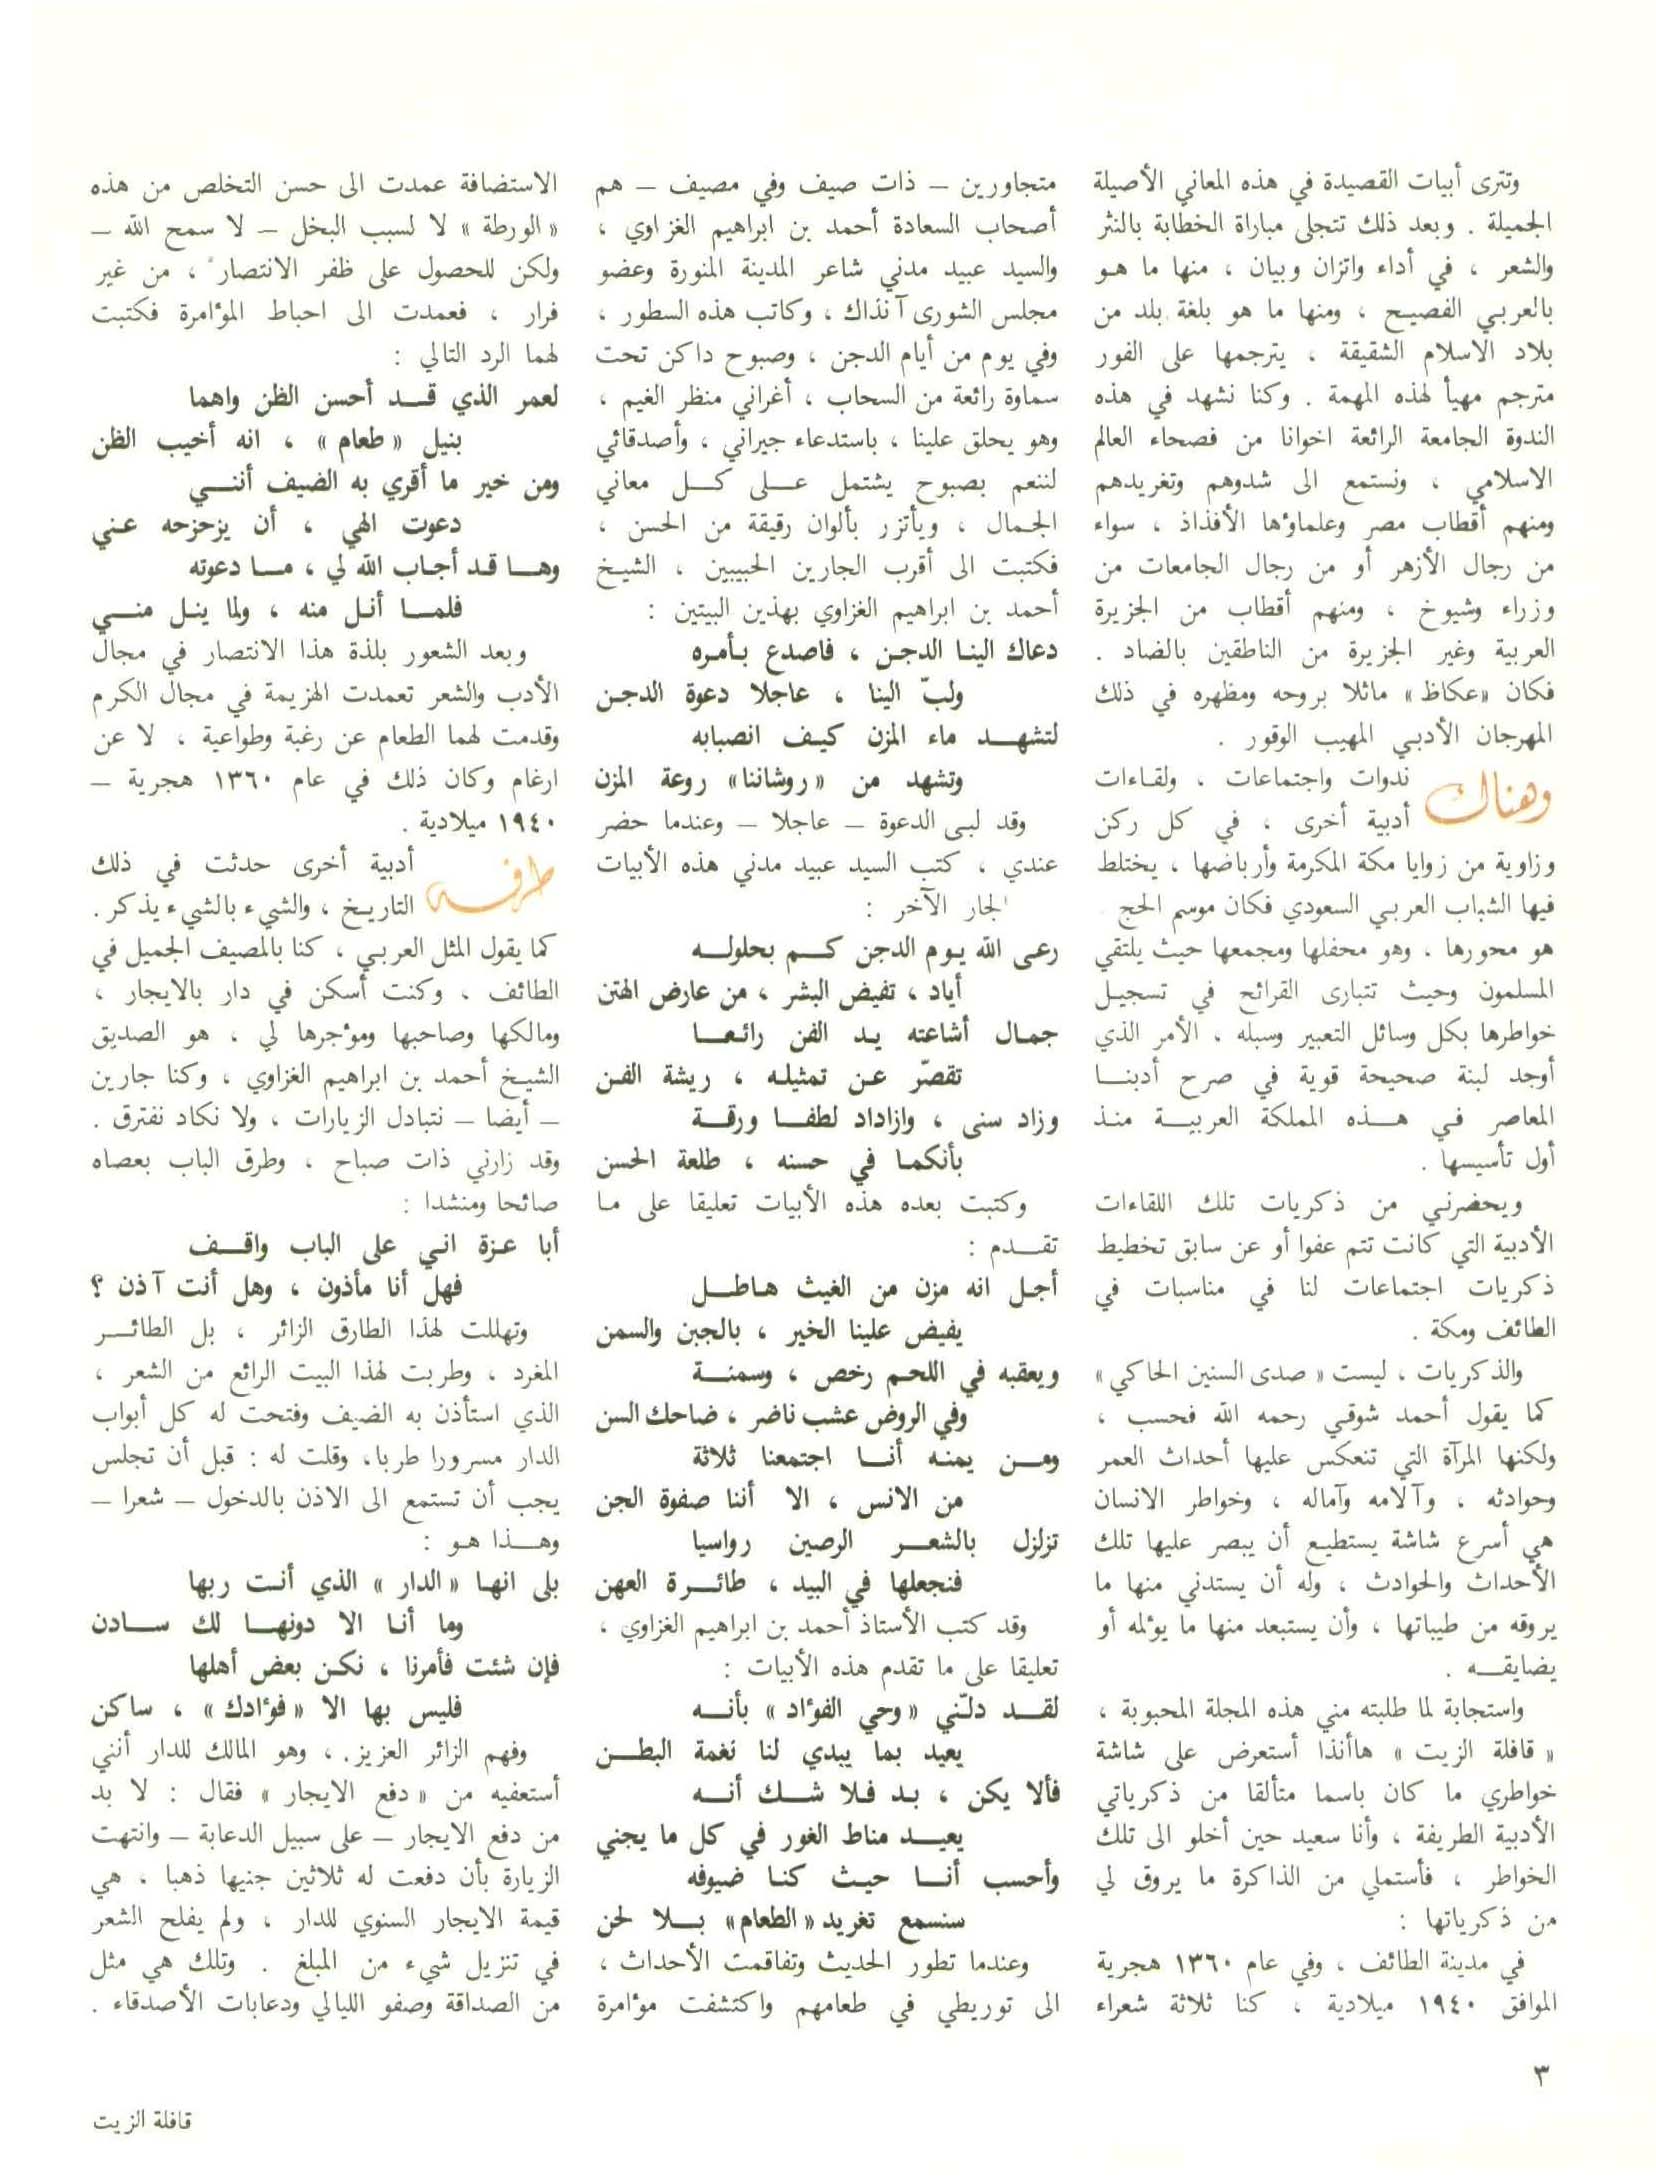 وتترى أبيات القصيدة في هذه المعاني الأصيلة
الجميلة . وبعد ذلك تتجلى مباراة الخطابة بالنثر
والشعر ، في أداء واتزان وبيان ، منها ما هو
بالعربي الفصيح ، ومنها ما هو بلغة بلد من
بلاد الاسلام الشقيقة ، يترجمها على الفور
مترجم مهيأ لهذه المهمة . وكنا نشهد في هذه
الندوة الجامعة الرائعة اخوانا من فصحاء العالم
الاسلامي ، ونستمع الى شدوهم وتغريدهم
ومنهم أقطاب مصر وعلماؤها الأفذاذ ، سواء
من رجال الأزهر أو من رجال الجامعات من
وزراء وشيوخ ، ومنهم أقطاب من الجزيرة
العربية وغير الجزيرة من الناطقين بالضاد .
فكان «عكاظ» ماثلا بروحه ومظهره في ذلك
المهرجان الأدبي المهيب الوقور .
وهناك ندوات واجتماعات ، ولقاءات
أدبية أخرى ، في كل ركن
وزاوية من زوايا مكة المكرمة وأرباضها ، يختلط
فيها الشباب العربي السعودي فكان موسم الحج
هو محورها ، وهو محفلها ومجمعها حيث يلتقي
المسلمون وحيث تتبارى القرائح في تسجيل
خواطرها بكل وسائل التعبير وسبله ، الأمر الذي
أوجد لبنة صحيحة قوية في صرح أدبنا
المعاصر في هذه المملكة العربية منذ
أول تأسيسها .
ويحضرني من ذكريات تلك اللقاءات
الأدبية التي كانت تتم عفوا أو عن سابق تخطيط
ذكريات اجتماعات لنا في مناسبات في
الطائف ومكة .
والذكريات ، ليست « صدى السنين الحاكي »
كما يقول أحمد شوقي رحمه الله فحسب ،
ولكنها المرآة التي تنعكس عليها أحداث العمر
وحوادثه ، وآلامه وآماله ، وخواطر الانسان
هي أسرع شاشة يستطيع أن يبصر عليها تلك
الأحداث والحوادث ، وله أن يستدني منها ما
يروقه من طيباتها ، وأن يستبعد منها ما يؤلمه أو
يضايقه .
واستجابة لما طلبته مني هذه المجلة المحبوبة ،
« قافلة الزيت » هاأنذا أستعرض على شاشة
خواطري ما كان باسما متألقا من ذكرياتي
الأدبية الطريفة ، وأنا سعيد حين أخلو الى تلك
الخواطر ، فأستملي من الذاكرة ما يروق لي
من ذكرياتها :
في مدينة الطائف ، وفي عام ١٣٦٠ هجرية
الموافق ١٩٤٠ ميلادية ، كنا ثلاثة شعراء
متجاورين – ذات صيف وفي مصيف – هم
أصحاب السعادة أحمد بن ابراهيم الغزاوي ،
والسيد عبيد مدني شاعر المدينة المنورة وعضو
مجلس الشورى آنذاك ، وكاتب هذه السطور ،
وفي يوم من أيام الدجن ، وصبوح داكن تحت
سماوة رائعة من السحاب ، أغراني منظر الغيم ،
وهو يحلق علينا ، باستدعاء جيراني ، وأصدقائي
لننعم بصبوح يشتمل على كل معاني
الجمال ، ويأتزر بألوان رقيقة من الحسن ،
فكتبت الى أقرب الجارين الحبيبين ، الشيخ
أحمد بن ابراهيم الغزاوي بهذين البيتين :
دعاك الينا الدجن ، فاصدع بأمره
ولبّ الينا ، عاجلا دعوة الدجن
لتشهد ماء المزن كيف انصبابه
وتشهد من «روشاننا» روعة المزن
وقد لبى الدعوة – عاجلا – وعندما حضر
عندي ، كتب السيد عبيد مدني هذه الأبيات
لجار الآخر :
رعى الله يوم الدجن كم بحلوله
أياد ، تفيض البشر ، من عارض الهتن
جمال أشاعته يد الفن رائعا
تقصّر عن تمثيله ، ريشة الفن
وزاد سنى ، وازاداد لطفا ورقة
بأنكما في حسنه ، طلعة الحسن
وكتبت بعده هذه الأبيات تعليقا على ما
تقدم :
أجل انه مزن من الغيث هاطل
يفيض علينا الخير ، بالجبن والسمن
ويعقبه في اللحم رخص ، وسمنة
وفي الروض عشب ناضر ، ضاحك السن
ومن يمنه أنا اجتمعنا ثلاثة
من الانس ، الا أننا صفوة الجن
تزلزل بالشعر الرصين رواسيا
فنجعلها في البيد ، طائرة العهن
وقد كتب الأستاذ أحمد بن ابراهيم الغزاوي ،
تعليقا على ما تقدم هذه الأبيات :
لقد دلّني «وحي الفؤاد» بأنه
يعيد بما يبدي لنا نغمة البطن
فألا يكن ، بد فلا شك أنه
يعيد مناط الغور في كل ما يجني
وأحسب أنا حيث كنا ضيوفه
سنسمع تغريد «الطعام» بلا لحن
وعندما تطور الحديث وتفاقمت الأحداث ،
الى توريطي في طعامهم واكتشفت مؤامرة
الاستضافة عمدت الى حسن التخلص من هذه
« الورطة » لا لسبب البخل – لا سمح الله –
ولكن للحصول على ظفر الانتصار ، من غير
فرار ، فعمدت الى احباط المؤامرة فكتبت
لهما الرد التالي :
لعمر الذي قد أحسن الظن واهما
بنيل «طعام» ، انه أخيب الظن
ومن خير ما أقري به الضيف أنني
دعوت الهي ، أن يزحزحه عني
وها قد أجاب الله لي ، ما دعوته
فلما أنل منه ، ولما ينل مني
وبعد الشعور بلذة هذا الانتصار في مجال
الأدب والشعر تعمدت الهزيمة في مجال الكرم
وقدمت لهما الطعام عن رغبة وطواعية ، لا عن
ارغام وكان ذلك في عام ١٣٦٠ هجرية –
١٩٤٠ ميلادية .
طرفه أدبية أخرى حدثت في ذلك
التاريخ ، والشيء بالشيء يذكر .
كما يقول المثل العربي ، كنا بالمصيف الجميل في
الطائف ، وكنت أسكن في دار بالايجار ،
ومالكها وصاحبها ومؤجرها لي ، هو الصديق
الشيخ أحمد بن ابراهيم الغزاوي ، وكنا جارين
– أيضا – نتبادل الزيارات ، ولا نكاد نفترق .
وقد زارني ذات صباح ، وطرق الباب بعصاه
صائحا ومنشدا :
أبا عزة اني على الباب واقف
فهل أنا مأذون ، وهل أنت آذن ؟
وتهللت لهذا الطارق الزائر ، بل الطائر
المغرد ، وطربت لهذا البيت الرائع من الشعر ،
الذي استأذن به الضيف وفتحت له كل أبواب
الدار مسرورا طربا، وقلت له : قبل أن تجلس
يجب أن تستمع الى الاذن بالدخول – شعرا –
وهذا هو :
بلى انها «الدار» الذي أنت ربها
وما أنا الا دونها لك سادن
فإن شئت فأمرنا ، نكن بعض أهلها
فليس بها الا «فؤادك» ، ساكن
وفهم الزائر العزيز ، وهو المالك للدار أنني
أستعفيه من «دفع الايجار» فقال : لا بد
من دفع الايجار – على سبيل الدعابة – وانتهت
الزيارة بأن دفعت له ثلاثين جنيها ذهبا ، هي
قيمة الايجار السنوي للدار ، ولم يفلح الشعر
في تنزيل شيء من المبلغ . وتلك هي مثل
من الصداقة وصفو الليالي ودعابات الأصدقاء .
٣
قافلة الزيت